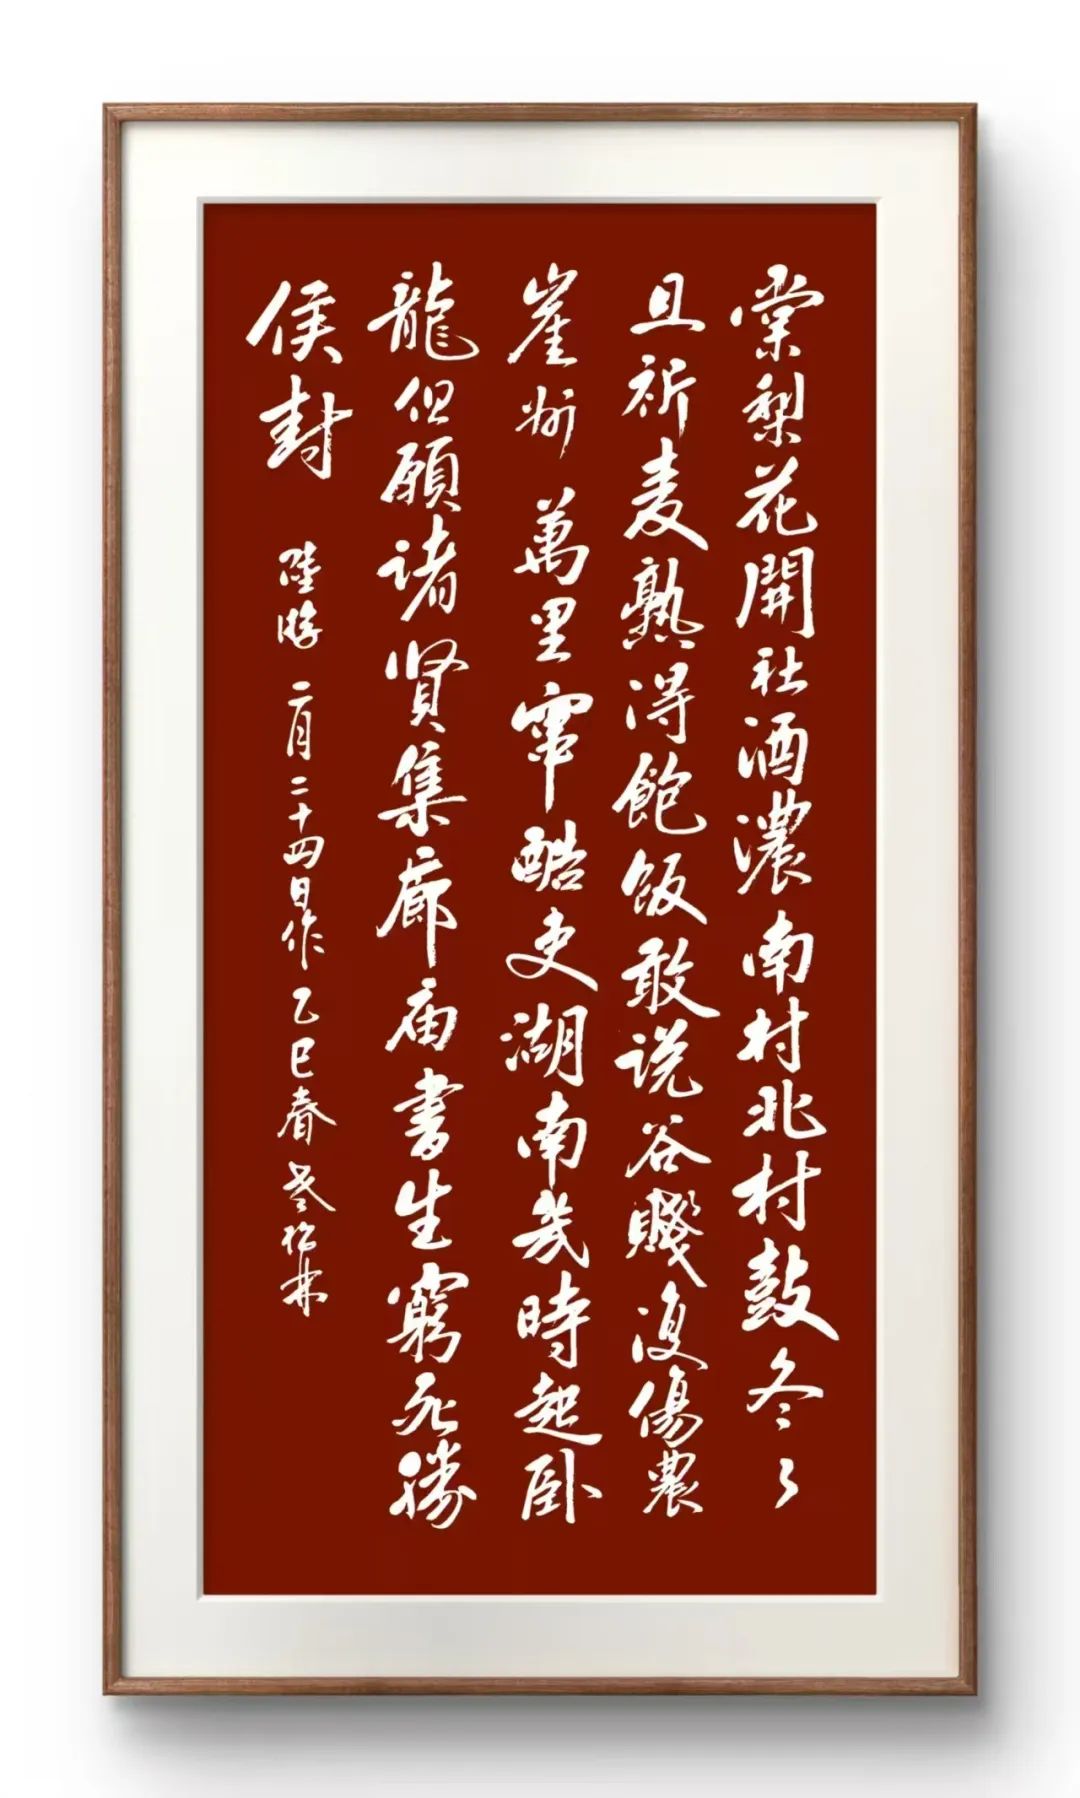 棠梨花開社酒濃南村北村鼓冬々
且祈麦熟得飽飯敢说谷賤復傷農
崖州萬里窜酷吏湖南幾時起卧
龍但願诸贤集廊庙書生窮死勝
侯封
陸游二月二十四日作乙巳春